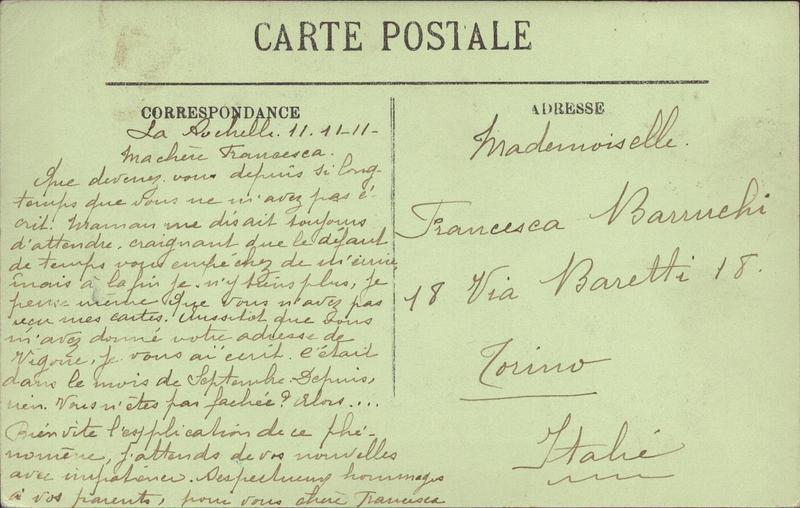 CARTE POSTALE
CORRESPONDANCE
La Rochelle. 11.11-11-
Ma chère Francesca.
Que devenez-vous depuis si long-
temps que vous ne m'avez pas é-
crit! Maman me disait toujours
d'attendre, craignant que le défaut
de temps vous empéchez de m'écrire,
mais à la fin je n'y tiens plus, je
pense même que vous n'avez pas
reçu mes cartes. Aussitôt que vous
m'avez donné votre adresse de
je vous ai écrit. C'était
dans le mois de Septembre. Depuis,
rien. Vous n'êtes pas fachée? Alors....
Bien vite l'explication de ce phé-
nomène, j'attends de vos nouvelles
avec impatience. Respectueux hommages
à vos parents, pour vous chère Francesca
ADRESSE
Mademoiselle.
Francesca Barruchi
18 Via Baretti 18.
Torino
Italie